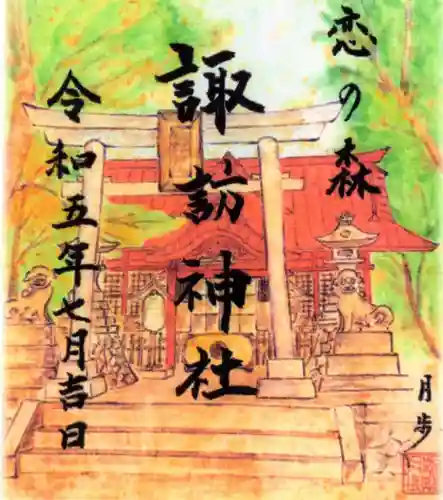 恋の森
諏訪神社
令和五年七月吉日
月歩